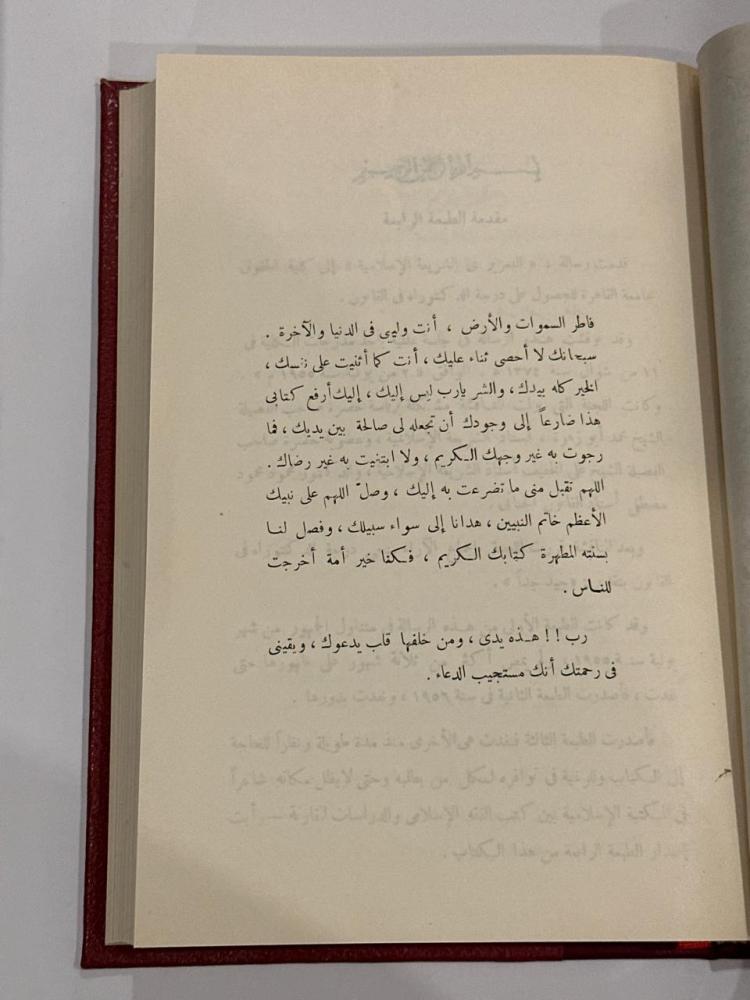 فاطر السموات والأرض ، أنت وليي فى الدنيا والآخرة .
سبحانك لا أحصى ثناء عليك ، أنت كما أثنيت على نفسك ،
الخير كله بيدك ، والشر يارب ليس إليك ، إليك أرفع كتابى
هذا ضارعاً إلى وجودك أن تجعله لى صالحة بين يديك ، فما
رجوت به غير وجهك الكريم ، ولا ابتغيت به غير رضاك .
اللهم تقبل منى ما تضرعت به إليك ، وصلّ اللهم على نبيك
الأعظم خاتم النبيين ، هدانا إلى سواء سبيلك ، وفصل لنا
بسنته المطهرة كتابك الكريم ، فكنا خير أمة أخرجت
للناس .
رب !! هذه يدى ، ومن خلفها قلب يدعوك ، ويقينى
فى رحمتك أنك مستجيب الدعاء .